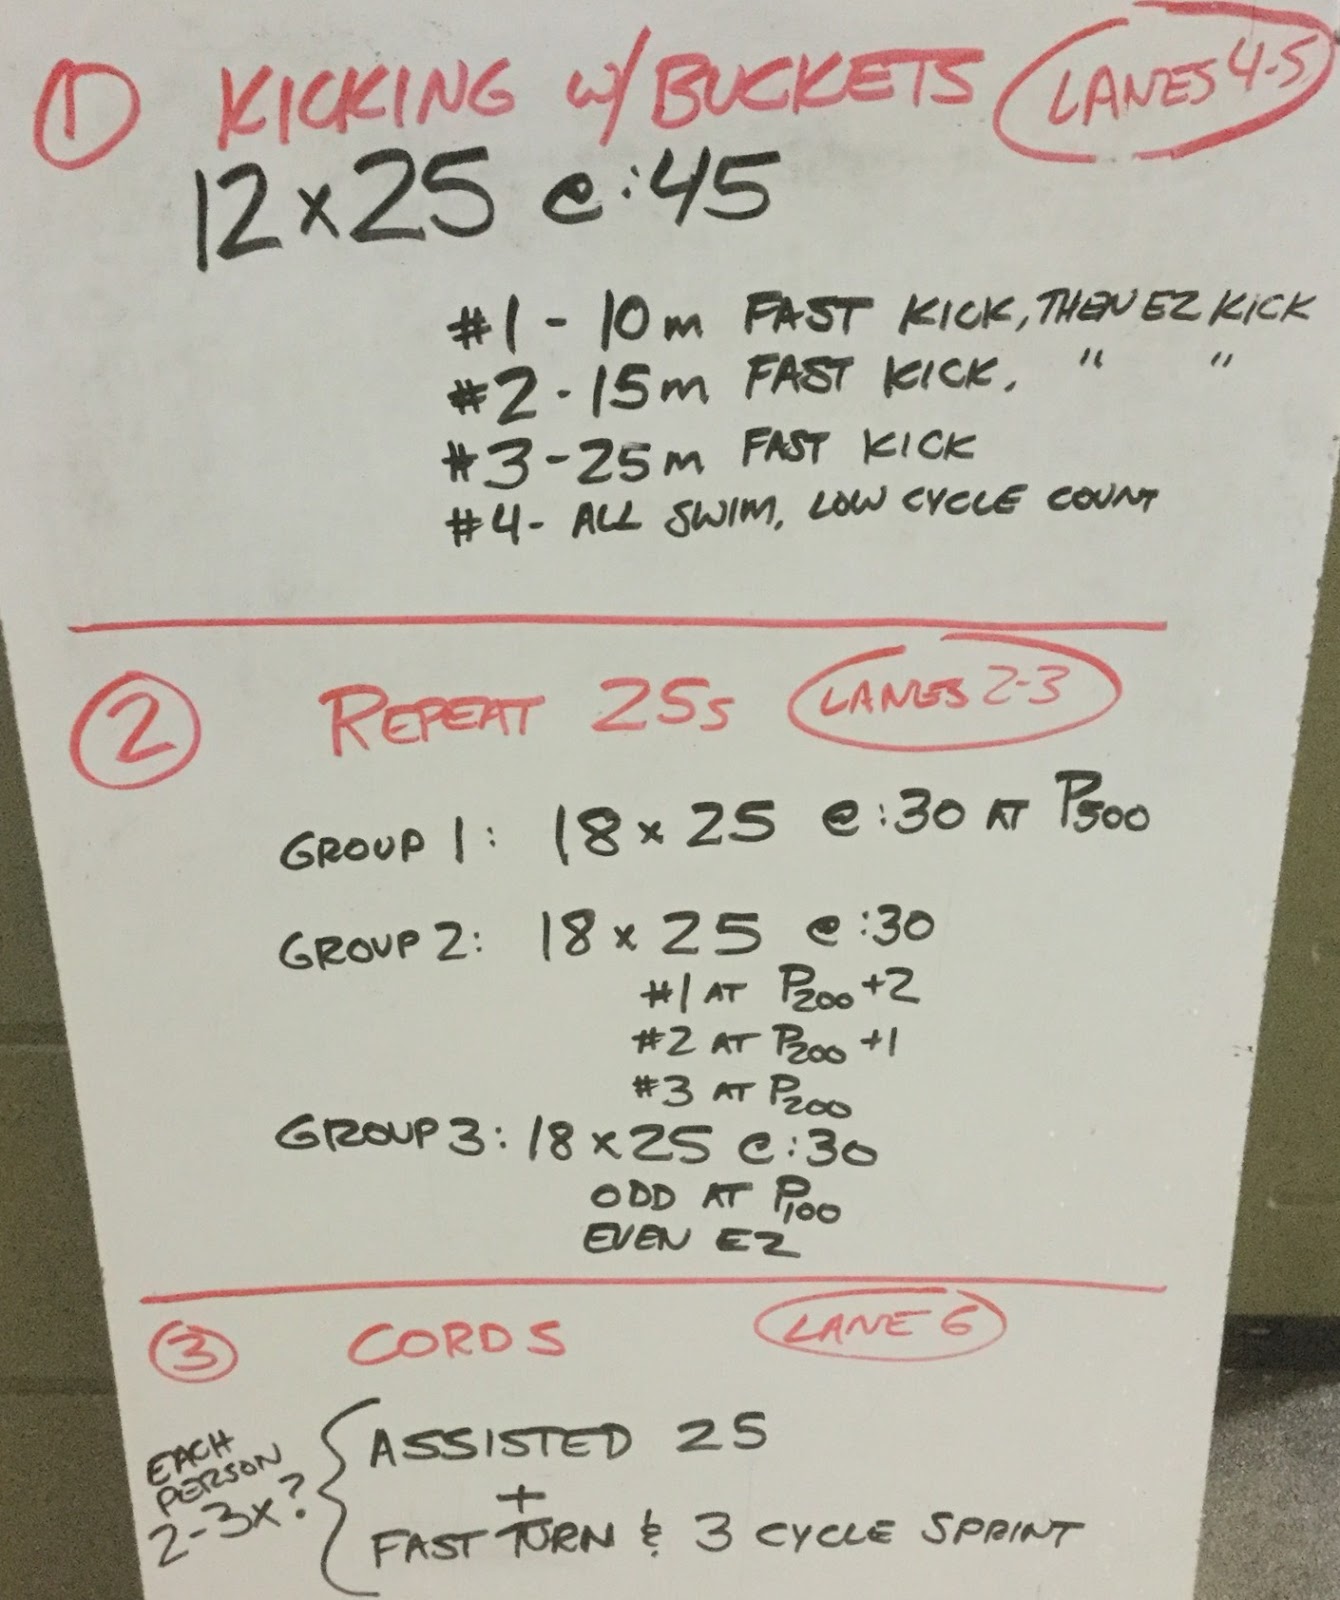 ① KICKING w/ BUCKETS LANES 4-5
12 x 25 @ :45
#1 - 10m FAST KICK, THEN EZ KICK
#2 - 15m FAST KICK, " "
#3 - 25m FAST KICK
#4 - ALL SWIM, LOW CYCLE COUNT
② REPEAT 25s LANES 2-3
GROUP 1: 18 x 25 @ :30 AT P500
GROUP 2: 18 x 25 @ :30
#1 AT P200 +2
#2 AT P200 +1
#3 AT P200
GROUP 3: 18 x 25 @ :30
ODD AT P100
EVEN EZ
③ CORDS LANE 6
EACH
PERSON
2-3x?
ASSISTED 25
+
FAST TURN & 3 CYCLE SPRINT